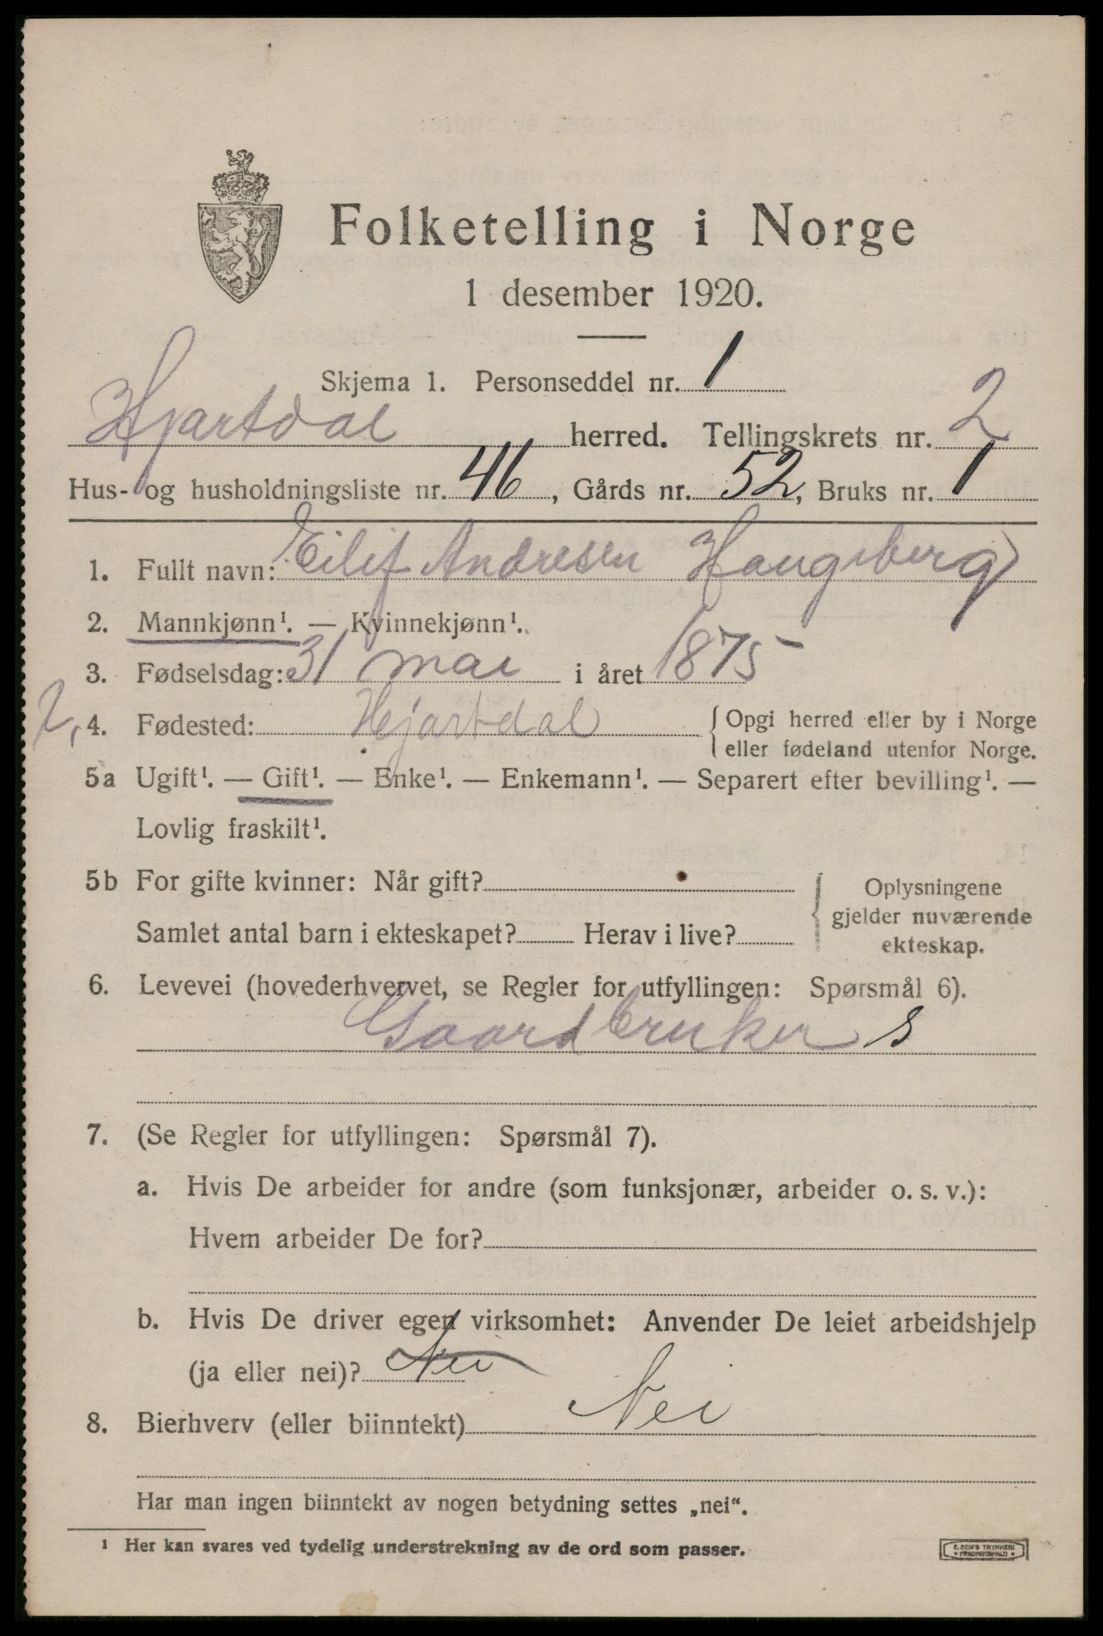 Folketelling i Norge
1 desember 1920.
Skjema 1. Personseddel nr. 1
Hjartdal herred. Tellingskrets nr. 2
Hus- og husholdningsliste nr. 46, Gårds nr. 52, Bruks nr. 1
1. Fullt navn: Eilif Andresen Haugsberg
2. Mannkjønn¹. — Kvinnekjønn¹.
3. Fødselsdag: 31 mai i året 1875
4. Fødested: Hjartdal {Opgi herred eller by i Norge
eller fødeland utenfor Norge.
5a Ugift¹. — Gift¹. — Enke¹. — Enkemann¹. — Separert efter bevilling¹. —
Lovlig fraskilt¹.
5b For gifte kvinner: Når gift?
Samlet antal barn i ekteskapet? Herav i live?
Oplysningene
gjelder nuværende
ekteskap.
6. Levevei (hovederhvervet, se Regler for utfyllingen: Spørsmål 6).
Gaardbruker s
7. (Se Regler for utfyllingen: Spørsmål 7).
a. Hvis De arbeider for andre (som funksjonær, arbeider o. s. v.):
Hvem arbeider De for?
b. Hvis De driver egen virksomhet: Anvender De leiet arbeidshjelp
(ja eller nei)? Nei
8. Bierhverv (eller biinntekt) Nei
Har man ingen biinntekt av nogen betydning settes „nei“.
¹ Her kan svares ved tydelig understrekning av de ord som passer.